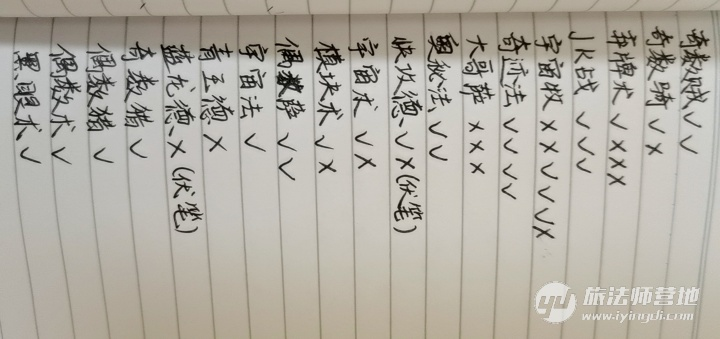 奇数贼 √√
奇数骑 √×
弃牌术 √×××
JK战 √√√
宇宙牧 ××√√√×
奇迹法 √√√√
大哥萨 ×××
奥秘法 √√
快攻德 √×(伏笔)
宇宙术 √×
模块术 √×
偶数萨 √√
宇宙法 √
青玉德 ×
蓝龙德 ×(伏笔)
奇数猎 √
偶数猎 √
偶数术 √
黑眼术 √
旅法师营地
www.iyingdi.com